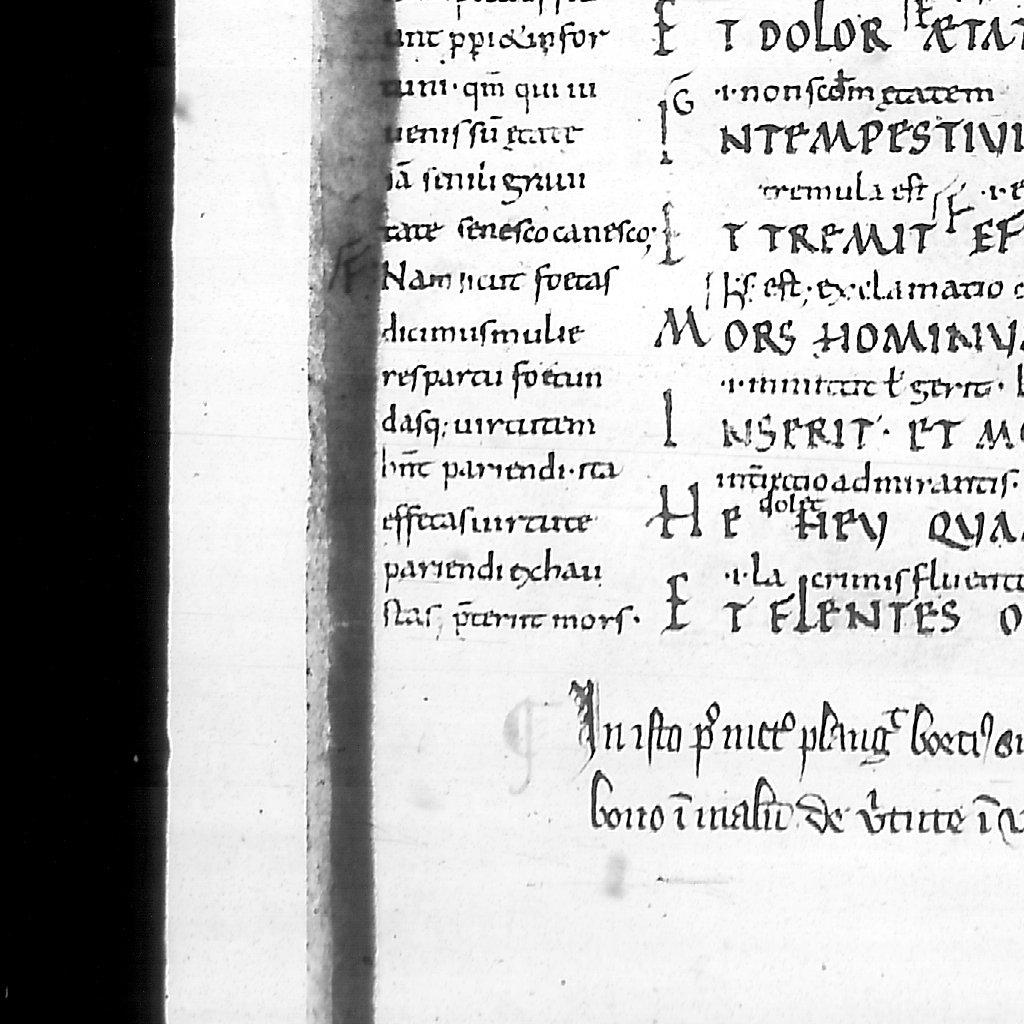 unt ꝓpi&infor
tuni· qm̄ qui in
uenissū ętate
iā simili graui
tate senesco canesco;
Nam sicut foetas
dicimus mulie
res partu foetun
dasq; uirtutem
hn̄t pariendi· ita
effetas uirtute
pariendi exhau
stas, p̄terint mors·
ET DOLOR ÆTAT
·i· non scdm ętatem
INTEMPESTIVI
tremula est
ET TREMIT EF
est; exclamatio
MORS HOMINV
·i· inmittit ł gerit·
INSERIT· ET MO
int̄iectio admirantis·
dolet
HE HEV QVA
·i· la crimis fluent
ET FLENTES O
In isto
bono ī de ī